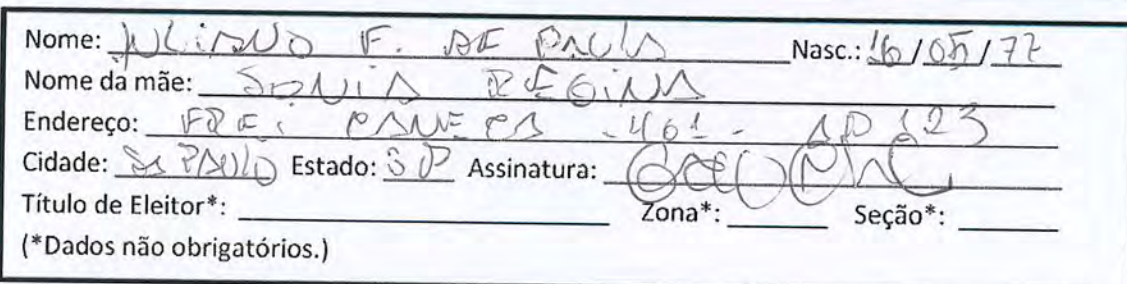 Nome: JULIANO F. DE PAULA Nasc.: 16/05/77
Nome da mãe: SONIA REGINA
Endereço: FREI CANECA - 461 - AP 123
Cidade: S. PAULO Estado: SP Assinatura:
Título de Eleitor*: Zona*: Seção*:
(*Dados não obrigatórios.)